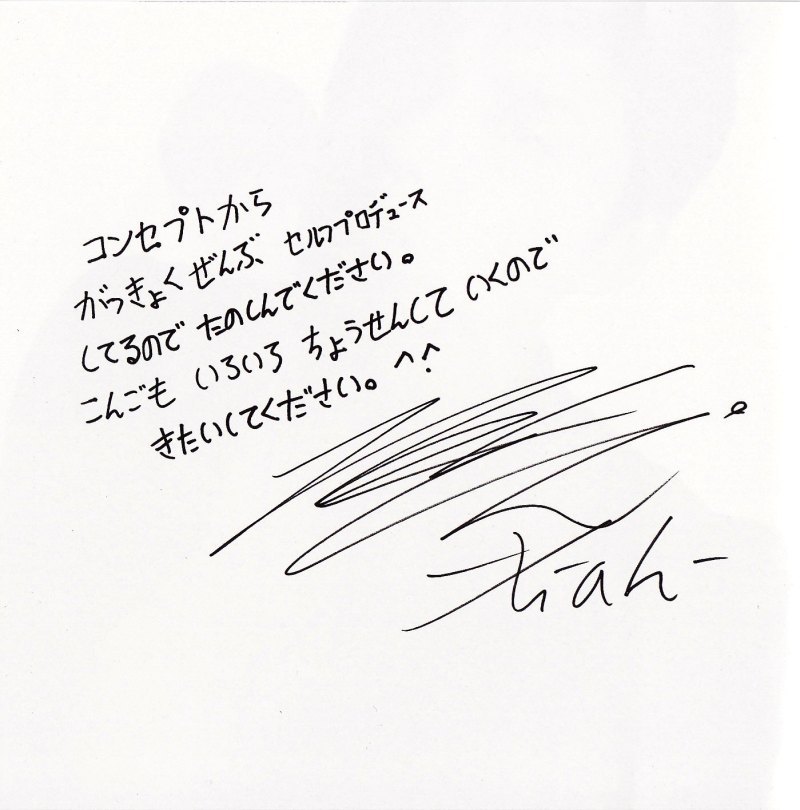 コンセプトから
がっきょくぜんぶ、セルフプロデュース
してるので たのしんでください。
こんごも いろいろ ちょうせんして いくので
きたいしてください。^.^